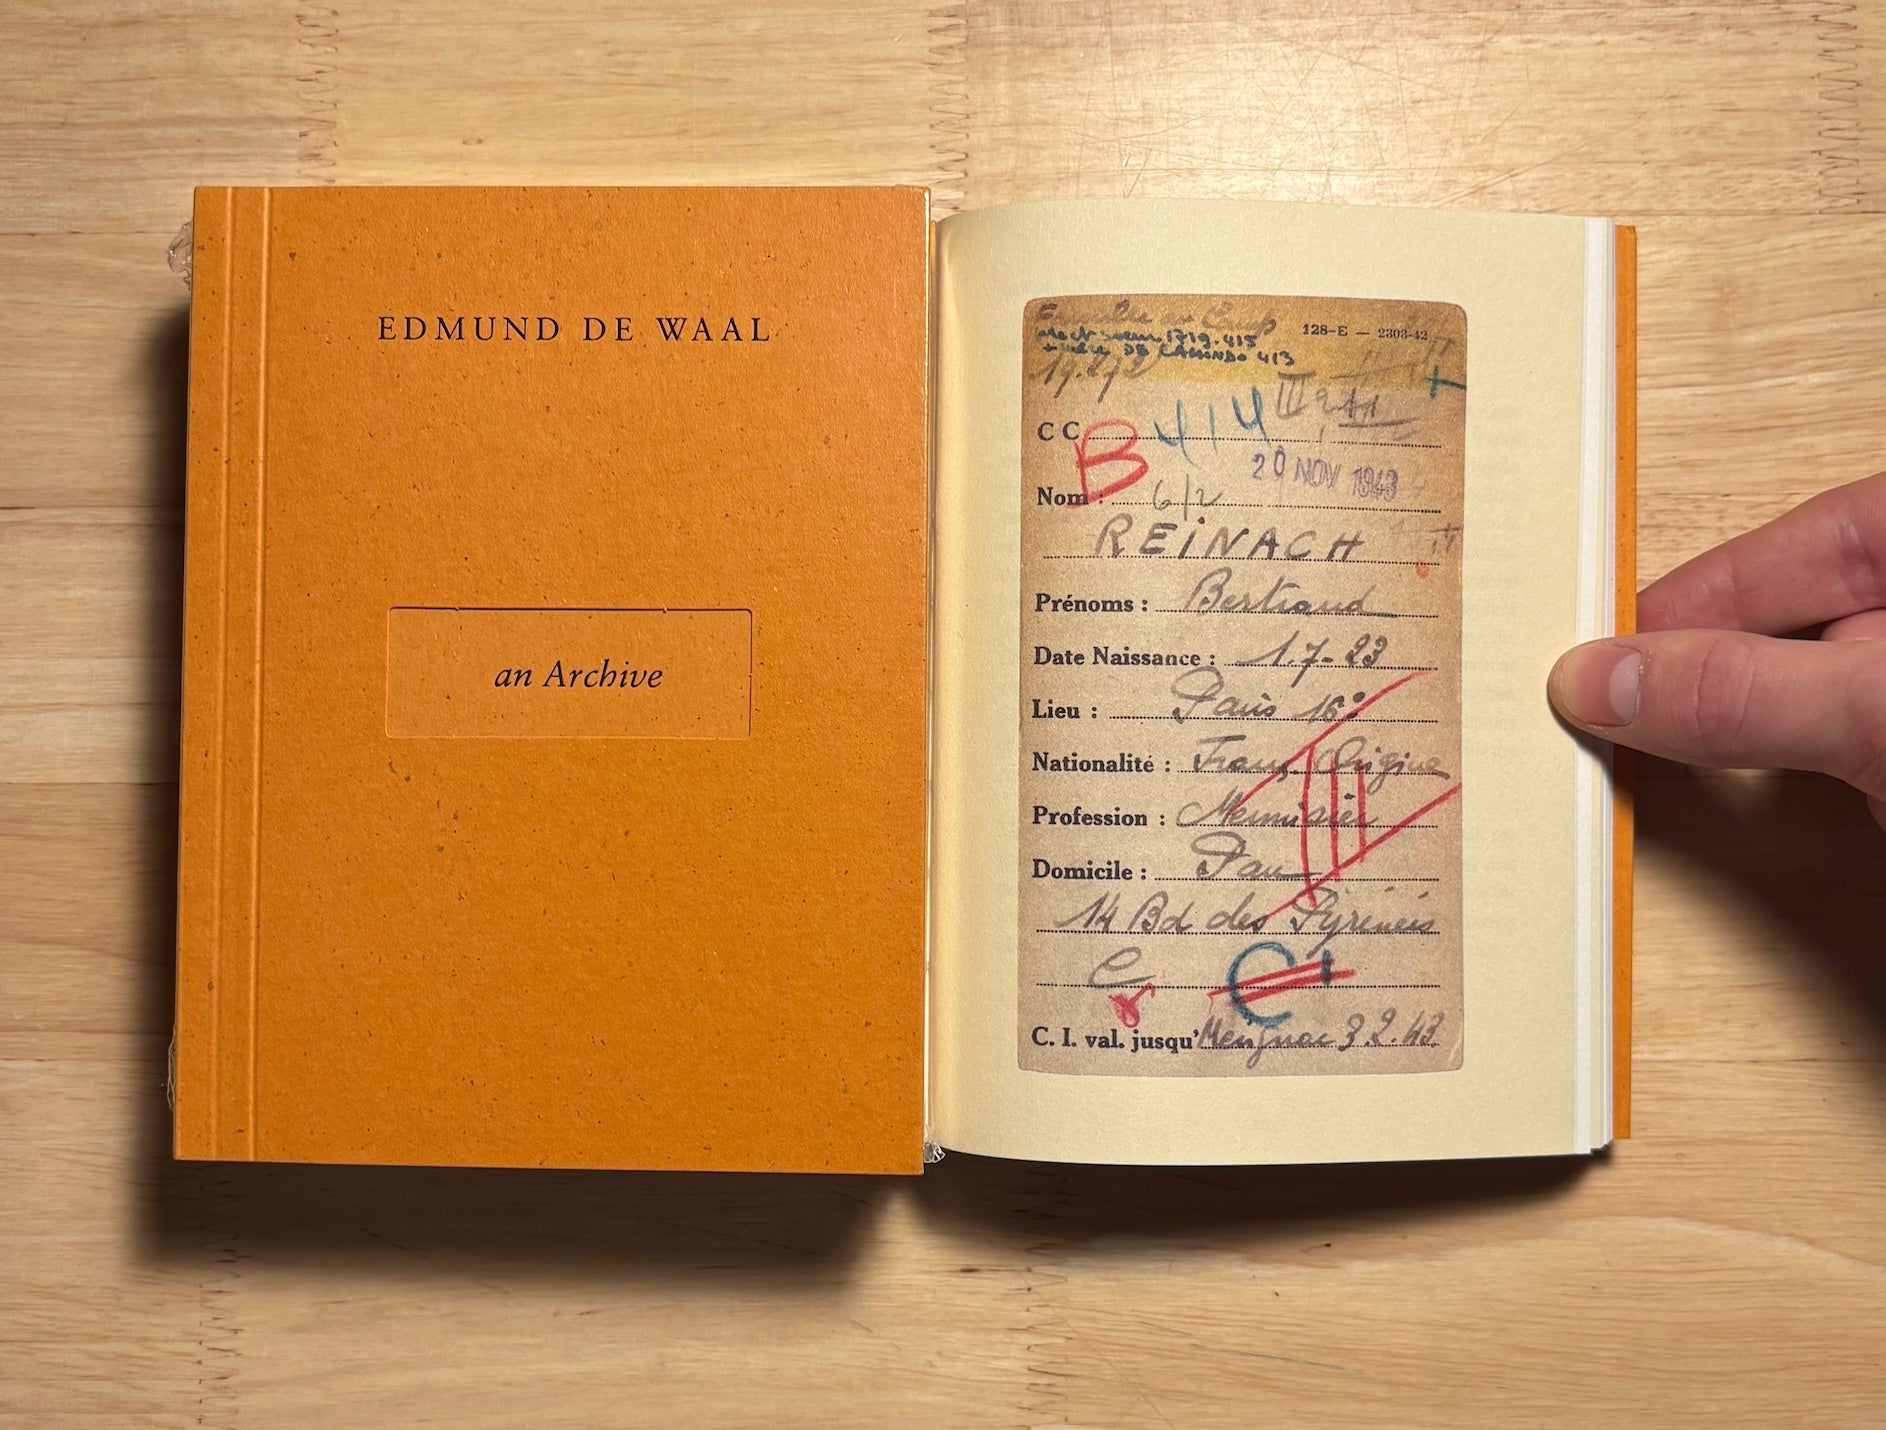 EDMUND DE WAAL
an Archive
Famille au Camp
128-E — 2303-42
1719.415
+ mère DE CAMINDO 413
19.
CC
B
414
III
20 NOV 1943
Nom :
6/2
REINACH
Prénoms : Bertrand
Date Naissance : 1.7-23
Lieu : Paris 16e
Nationalité : Franç. Origine
Profession : Menuisier
Domicile : Pau
14 Bd des Pyrénées
C
C'
C. I. val. jusqu' Merignac 3.2.43.